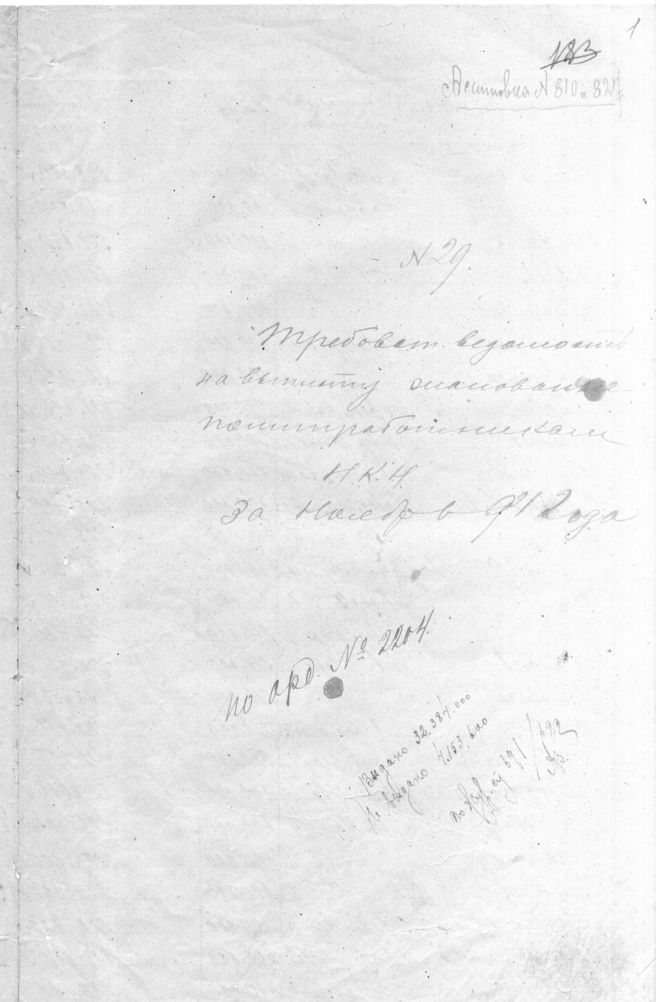 1
183
Ассигновка N 810 и 821
N 29.
Требоват. ведомость
на выплату жалования
политработникам
Н.К.Н.
За Ноябрь 921 года
по орд. № 2204.
Выдано 32.384.000
Не выдано 4.153.600
по